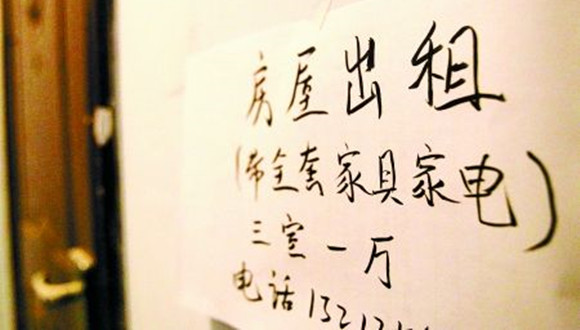 房屋出租
(带全套家具家电)
三室一厅
电话 13212